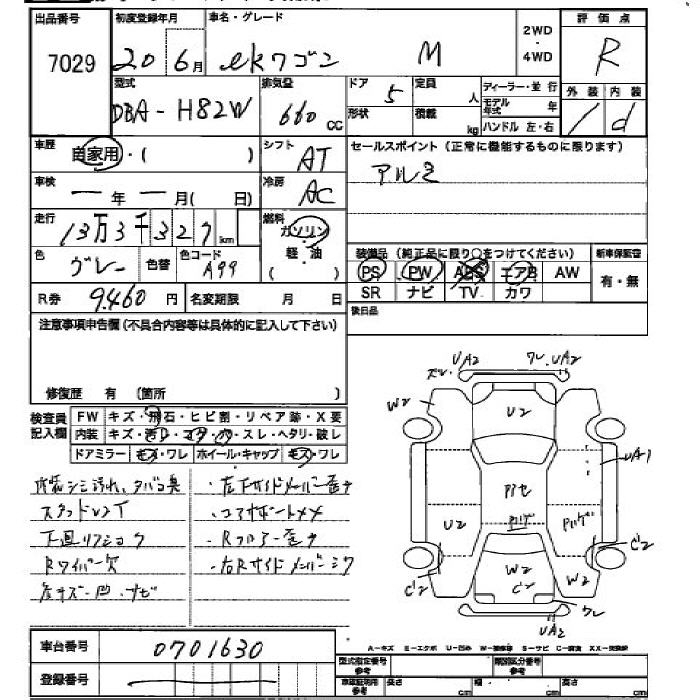 出品番号 初度登録年月 車名・グレード 2WD ・ 4WD 評価点
7029 20 6月 ekワゴン M R
型式 排気量 ドア 5 定員 人 ディーラー・並行 外装 内装
DBA-H82W 660 cc 形状 積載 kg モデル年式 年 ハンドル 左・右 / d
車歴 自家用・( ) シフト AT セールスポイント(正常に機能するものに限ります)
車検 ー年 ー月( 日) 冷房 AC アルミ
走行 13万3千327km 燃料 ガソリン 軽・油 ( )
色 グレー 色替 色コード A99
装備品(純正品に限り○をつけてください) 新車保証書
PS PW ABS エアB AW 有・無
SR ナビ TV カワ
R券 9460円 名変期限 月 日 後日品
注意事項申告欄(不具合内容等は具体的に記入して下さい)
修復歴 有 (箇所 )
検査員記入欄 FW キズ・飛石・ヒビ割・リペア跡・X要
内装 キズ・汚レ・コゲ・穴・スレ・ヘタリ・破レ
ドアミラー キズ・ワレ ホイール・キャップ キズ・ワレ
内装シミ汚れ、タバコ臭 ・左Fサイドメンバー歪ナ
・コアサポートメメ
下廻リサビ
Rワイパー欠 ・Rフロアー歪ナ
・右Rサイドメンバー
UA2 ワレ、UA2
W2 U2 UA1
Pバゲ
U2 Pバゲ
C2 W2 C2 W2 C2
ワレ
UA2
車台番号 0701630
登録番号
A-キズ E-エクボ U-凹み W-補修跡 S-サビ C-腐食 XX-交換跡
型式指定番号 参考 類別区分番号 参考
車庫証明用 参考 長さ cm 幅 cm 高さ cm